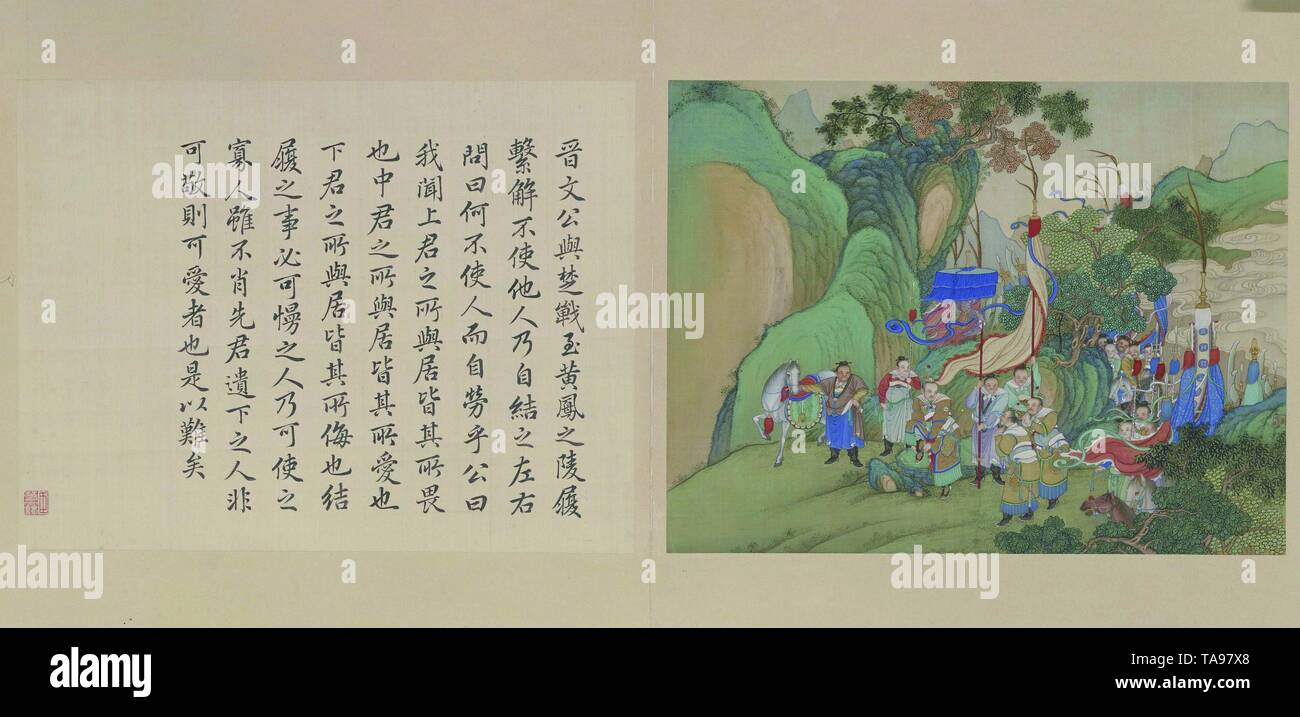 晉文公與楚戰至黃鳳之陵履
繫解不使他人乃自結之左右
問曰何不使人而自勞乎公曰
我聞上君之所與居皆其所畏
也中君之所與居皆其所愛也
下君之所與居皆其所侮也結
履之事必可慢之人乃可使之
寡人雖不肖先君遺下之人非
可敬則可愛者也是以難矣
alamy
Image ID: TA97X8
www.alamy.com